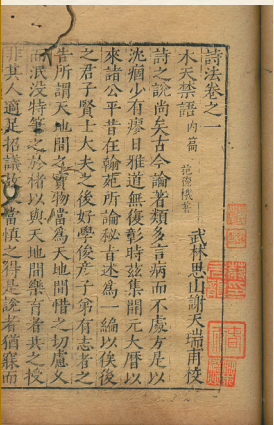 詩法卷之一
木天禁語 內篇 范德機著
武林思山謝天瑞甫校
詩之說尚矣古今論著類多言病而不處方是以
沈痼少有瘳日雅道無復彰時玆集開元大曆以
來諸公平昔在翰苑所論秘旨述為一編以俟後
之君子賢士大夫之後好學俊彥子弟有志者之
告所謂天地間之寶物當為天地間惜之切慮久
而泯沒特筆之於楮以與天地間樂育者共之授
非其人適足招議故當慎之得是說者猶寐而